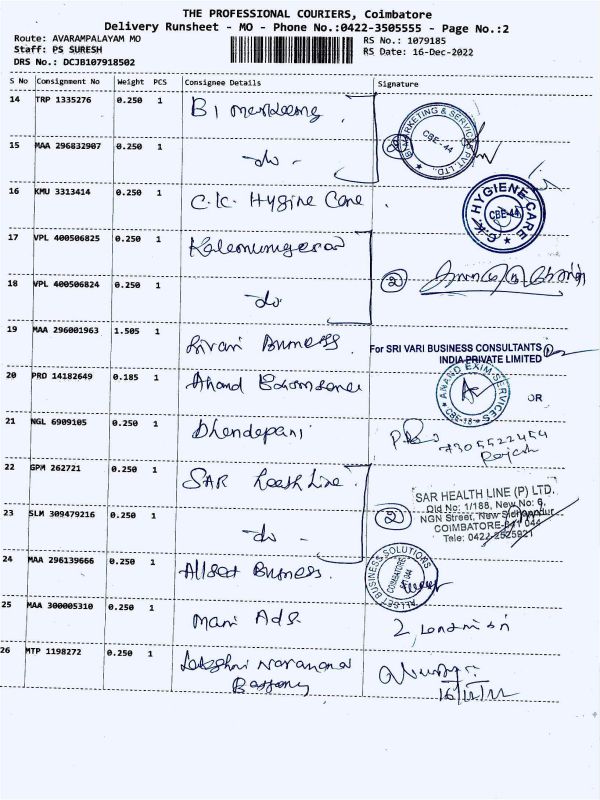 THE PROFESSIONAL COURIERS, Coimbatore
Delivery Runsheet - MO - Phone No.:0422-3505555 - Page No.:2
Route: AVARAMPALAYAM MO
RS No.: 1079185
Staff: PS SURESH
RS Date: 16-Dec-2022
DRS No.: DCJB107918502
S No Consignment No Weight PCS Consignee Details Signature
14 TRP 1335276 0.250 1 B1
B MARKETING & SERVICES PVT. LTD.
CBE-44
15 MAA 296832907 0.250 1 do -
16 KMU 3313414 0.250 1 C.K. Hygine Care
C.K. HYGIENE CARE
CBE-44
17 VPL 400506825 0.250 1
18 VPL 400506824 0.250 1 do
2
19 MAA 296001963 1.505 1 Srivari Business
For SRI VARI BUSINESS CONSULTANTS
INDIA PRIVATE LIMITED
20 PRO 14182649 0.185 1 Anand
ANAND EXIM SERVICES
CBE-18
OR
21 NGL 6909105 0.250 1 Dhendepani
7305522454
Rajesh
22 GPM 262721 0.250 1 SAR Health Line
SAR HEALTH LINE (P) LTD.
Old No: 1/188, New No: 6,
NGN Street, New Sidhapudur
COIMBATORE-641 044
Tele: 0422-2525921
23 SLM 309479216 0.250 1 do -
2
24 MAA 296139666 0.250 1 Allset Business
ALLGET BUSINESS SOLUTIONS
COIMBATORE
641 044
25 MAA 300005310 0.250 1 Mani Ads
26 MTP 1198272 0.250 1 Lakshmi Narayana
16/12/22